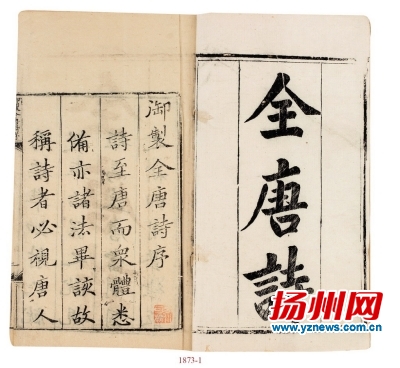 全唐詩
御製全唐詩序
詩至唐而衆體悉
備亦諸法畢該故
稱詩者必視唐人
扬州网
www.yznews.com.cn
1873-1